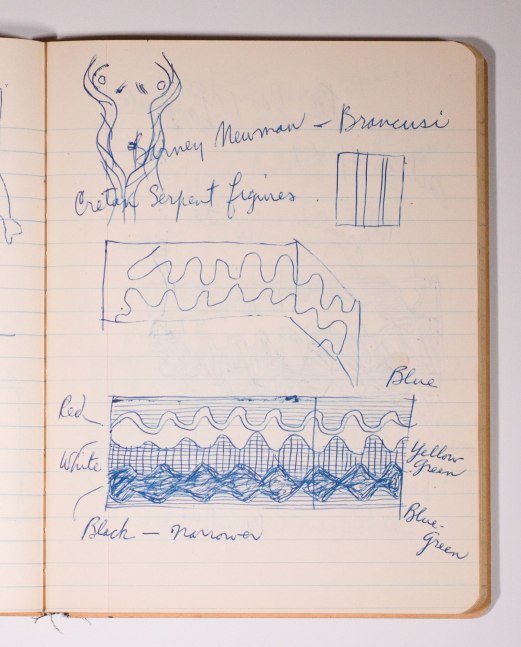 Barney Newman – Brancusi
Cretan Serpent figures.
Blue
Red
White
Yellow-
Green
Black – narrower
Blue-
Green